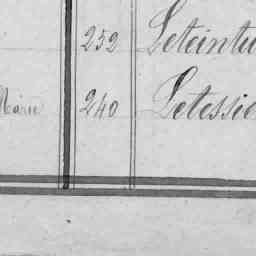 252 Leteintu
Marie 240 Letessie